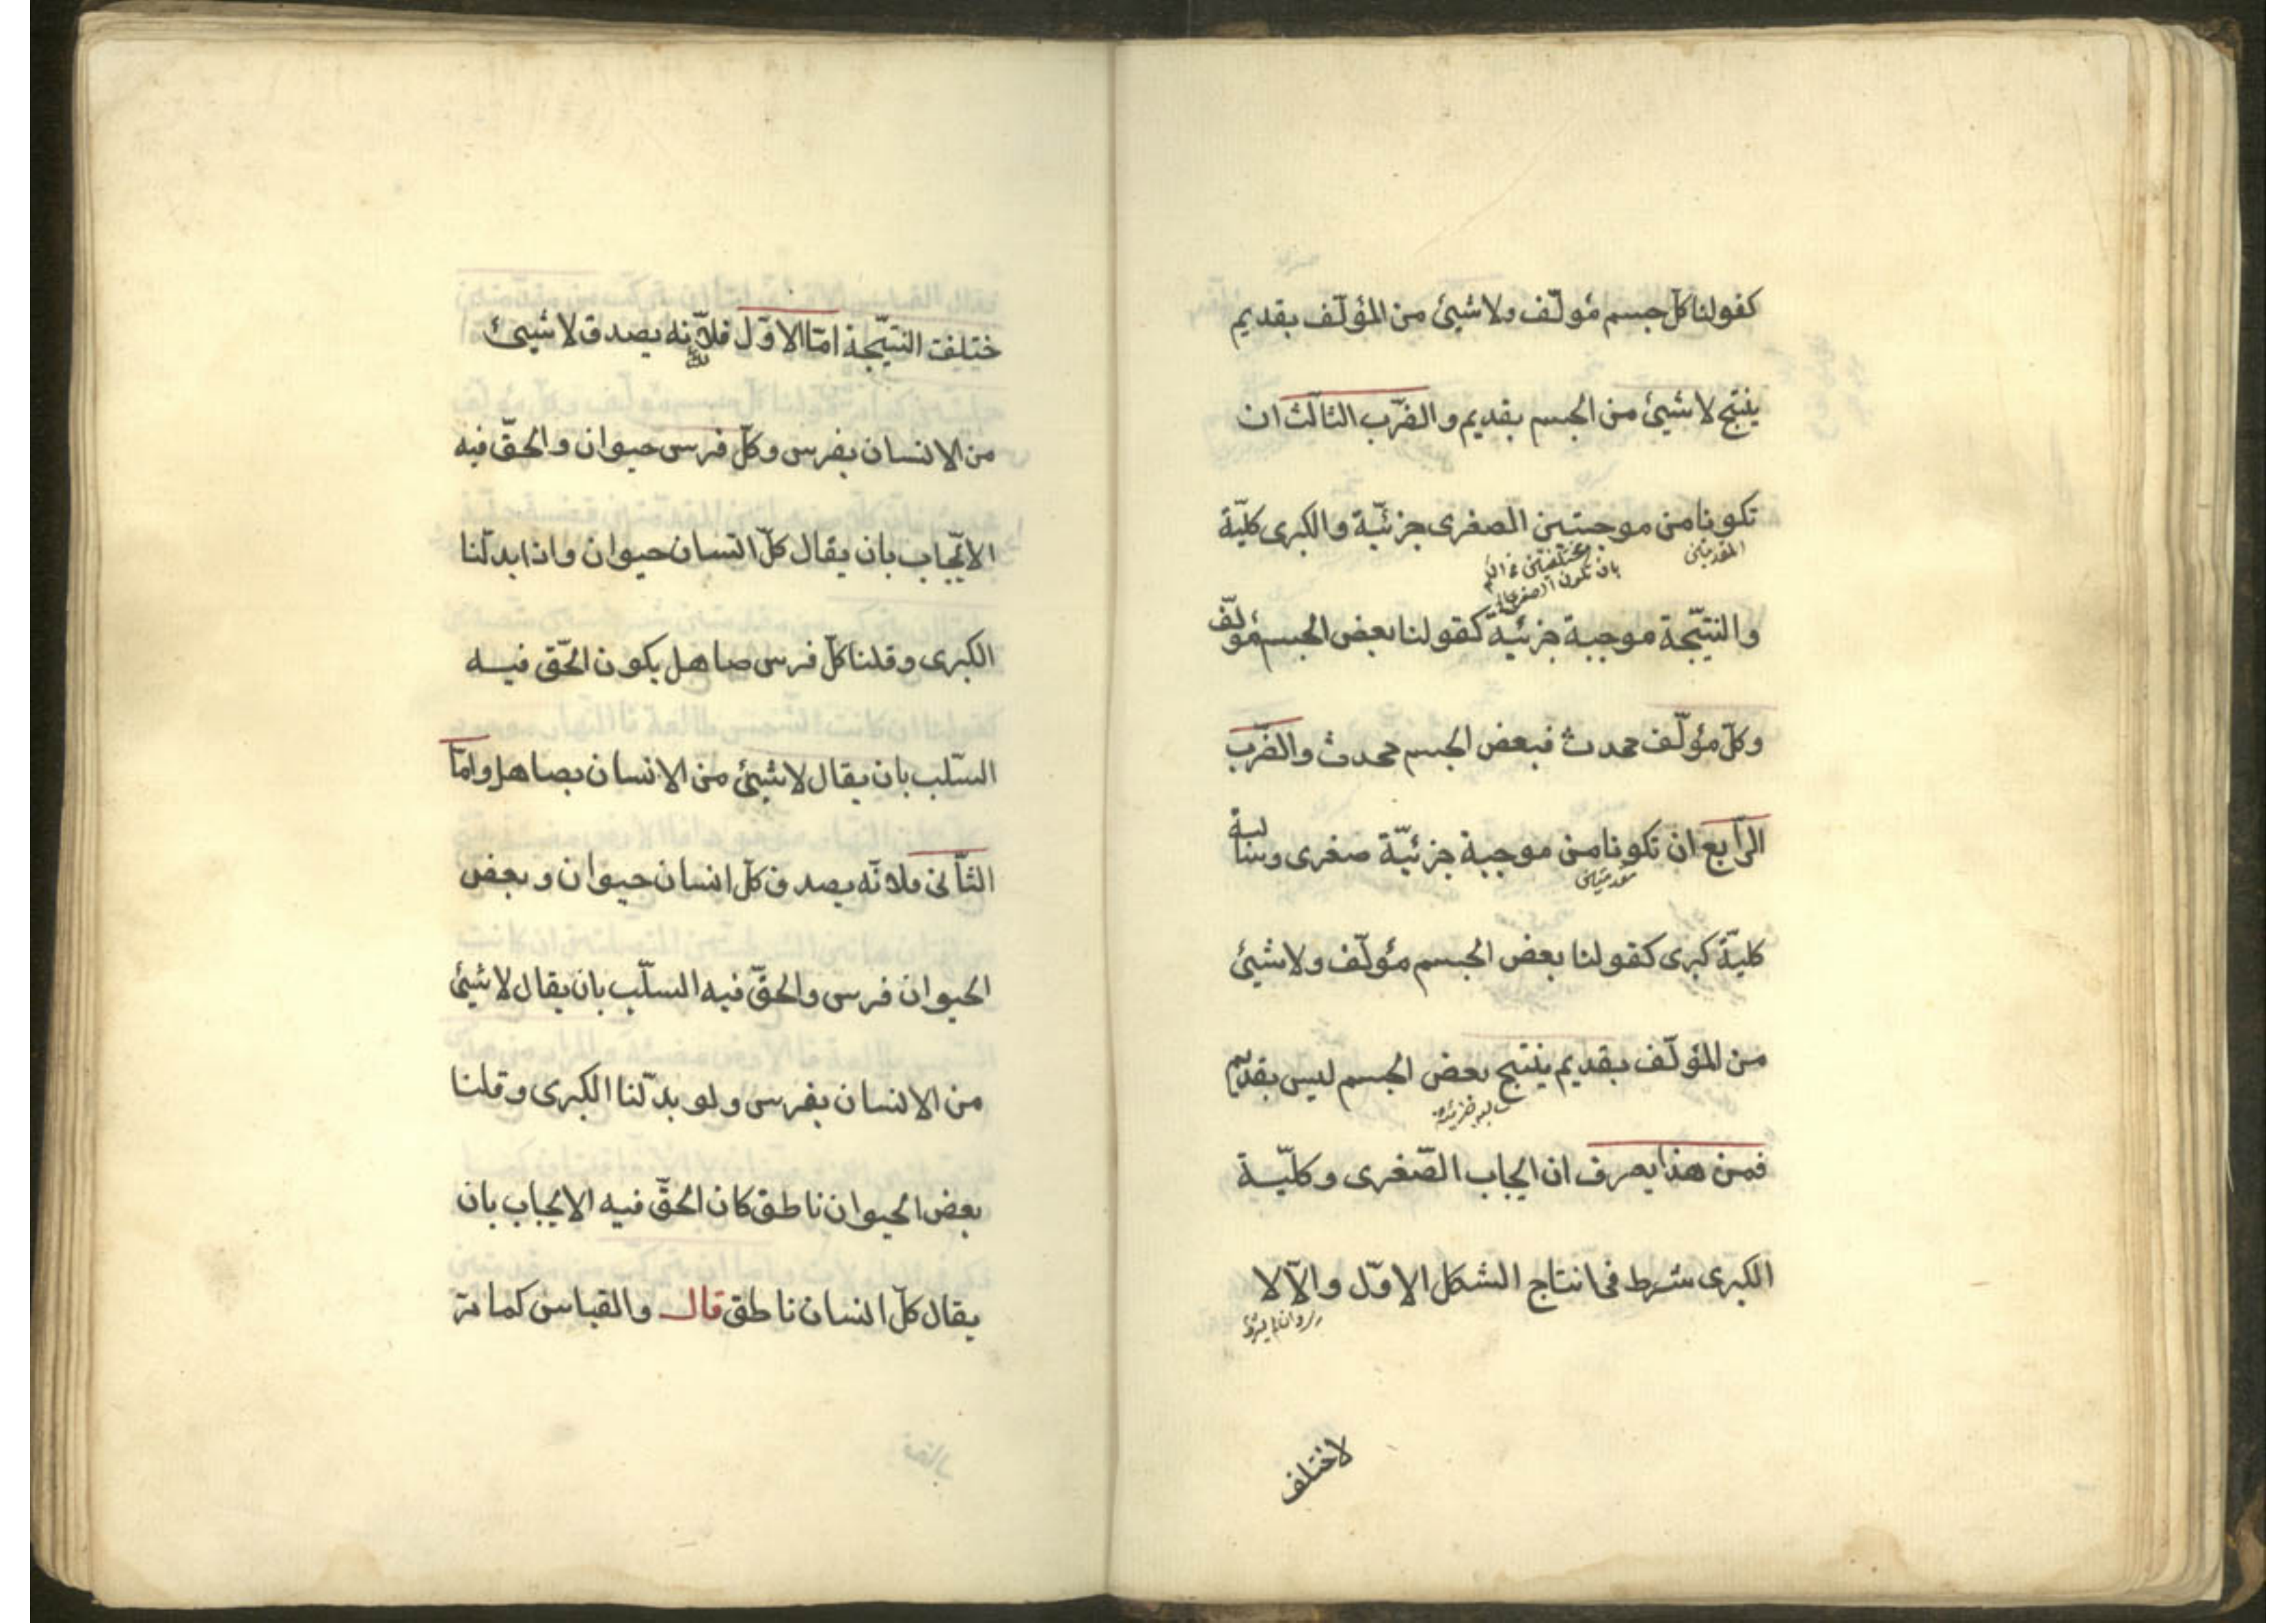 كقولنا كلّ جسم مؤلّف ولا شيئ من المؤلّف بقديم
ينتج لا شيئ من الجسم بقديم والضّرب الثالث ان
تكونا من موجبتين الصغرى جزئيّة والكبرى كليّة
المقدمتين
بان تكون الصغرى
والنتيّجة موجبة جزئيّة كقولنا بعض الجسم مؤلّف
وكلّ مؤلّف محدث فبعض الجسم محدث والضّرب
الرّابع ان تكونا من موجبة جزئيّة صغرى وسالبة
مقدمتين
كليّة كبرى كقولنا بعض الجسم مؤلّف ولا شيئ
من المؤلّف بقديم ينتج بعض الجسم ليس بقديم
سالبه جزئيه
فمن هذا يعرف ان ايجاب الصّغرى وكليّة
الكبرى شرط فى انتاج الشكل الاوّل والّا لا
وان لم يشترط
لاختلف
ختلفت النتيّجة امّا الاوّل فلانّه يصدق لا شيئ
من الانسان بفرس وكلّ فرس حيوان والحقّ فيه
الايّجاب بان يقال كلّ انسان حيوان واذا بدلّنا
الكبرى وقلنا كلّ فرس صاهل يكون الحّق فيه
السّلب بان يقال لا شيئ من الانسان بصاهل وامّا
الثّانى فلانّه يصدق كلّ انسان حيوان وبعض
الحيوان فرس والحقّ فيه السلّب بان يقال لا شيئ
من الانسان بفرس ولو بدلّنا الكبرى وقلنا
بعض الحيوان ناطق كان الحقّ فيه الايجاب بان
يقال كلّ انسان ناطق قال والقياس كما مرّ